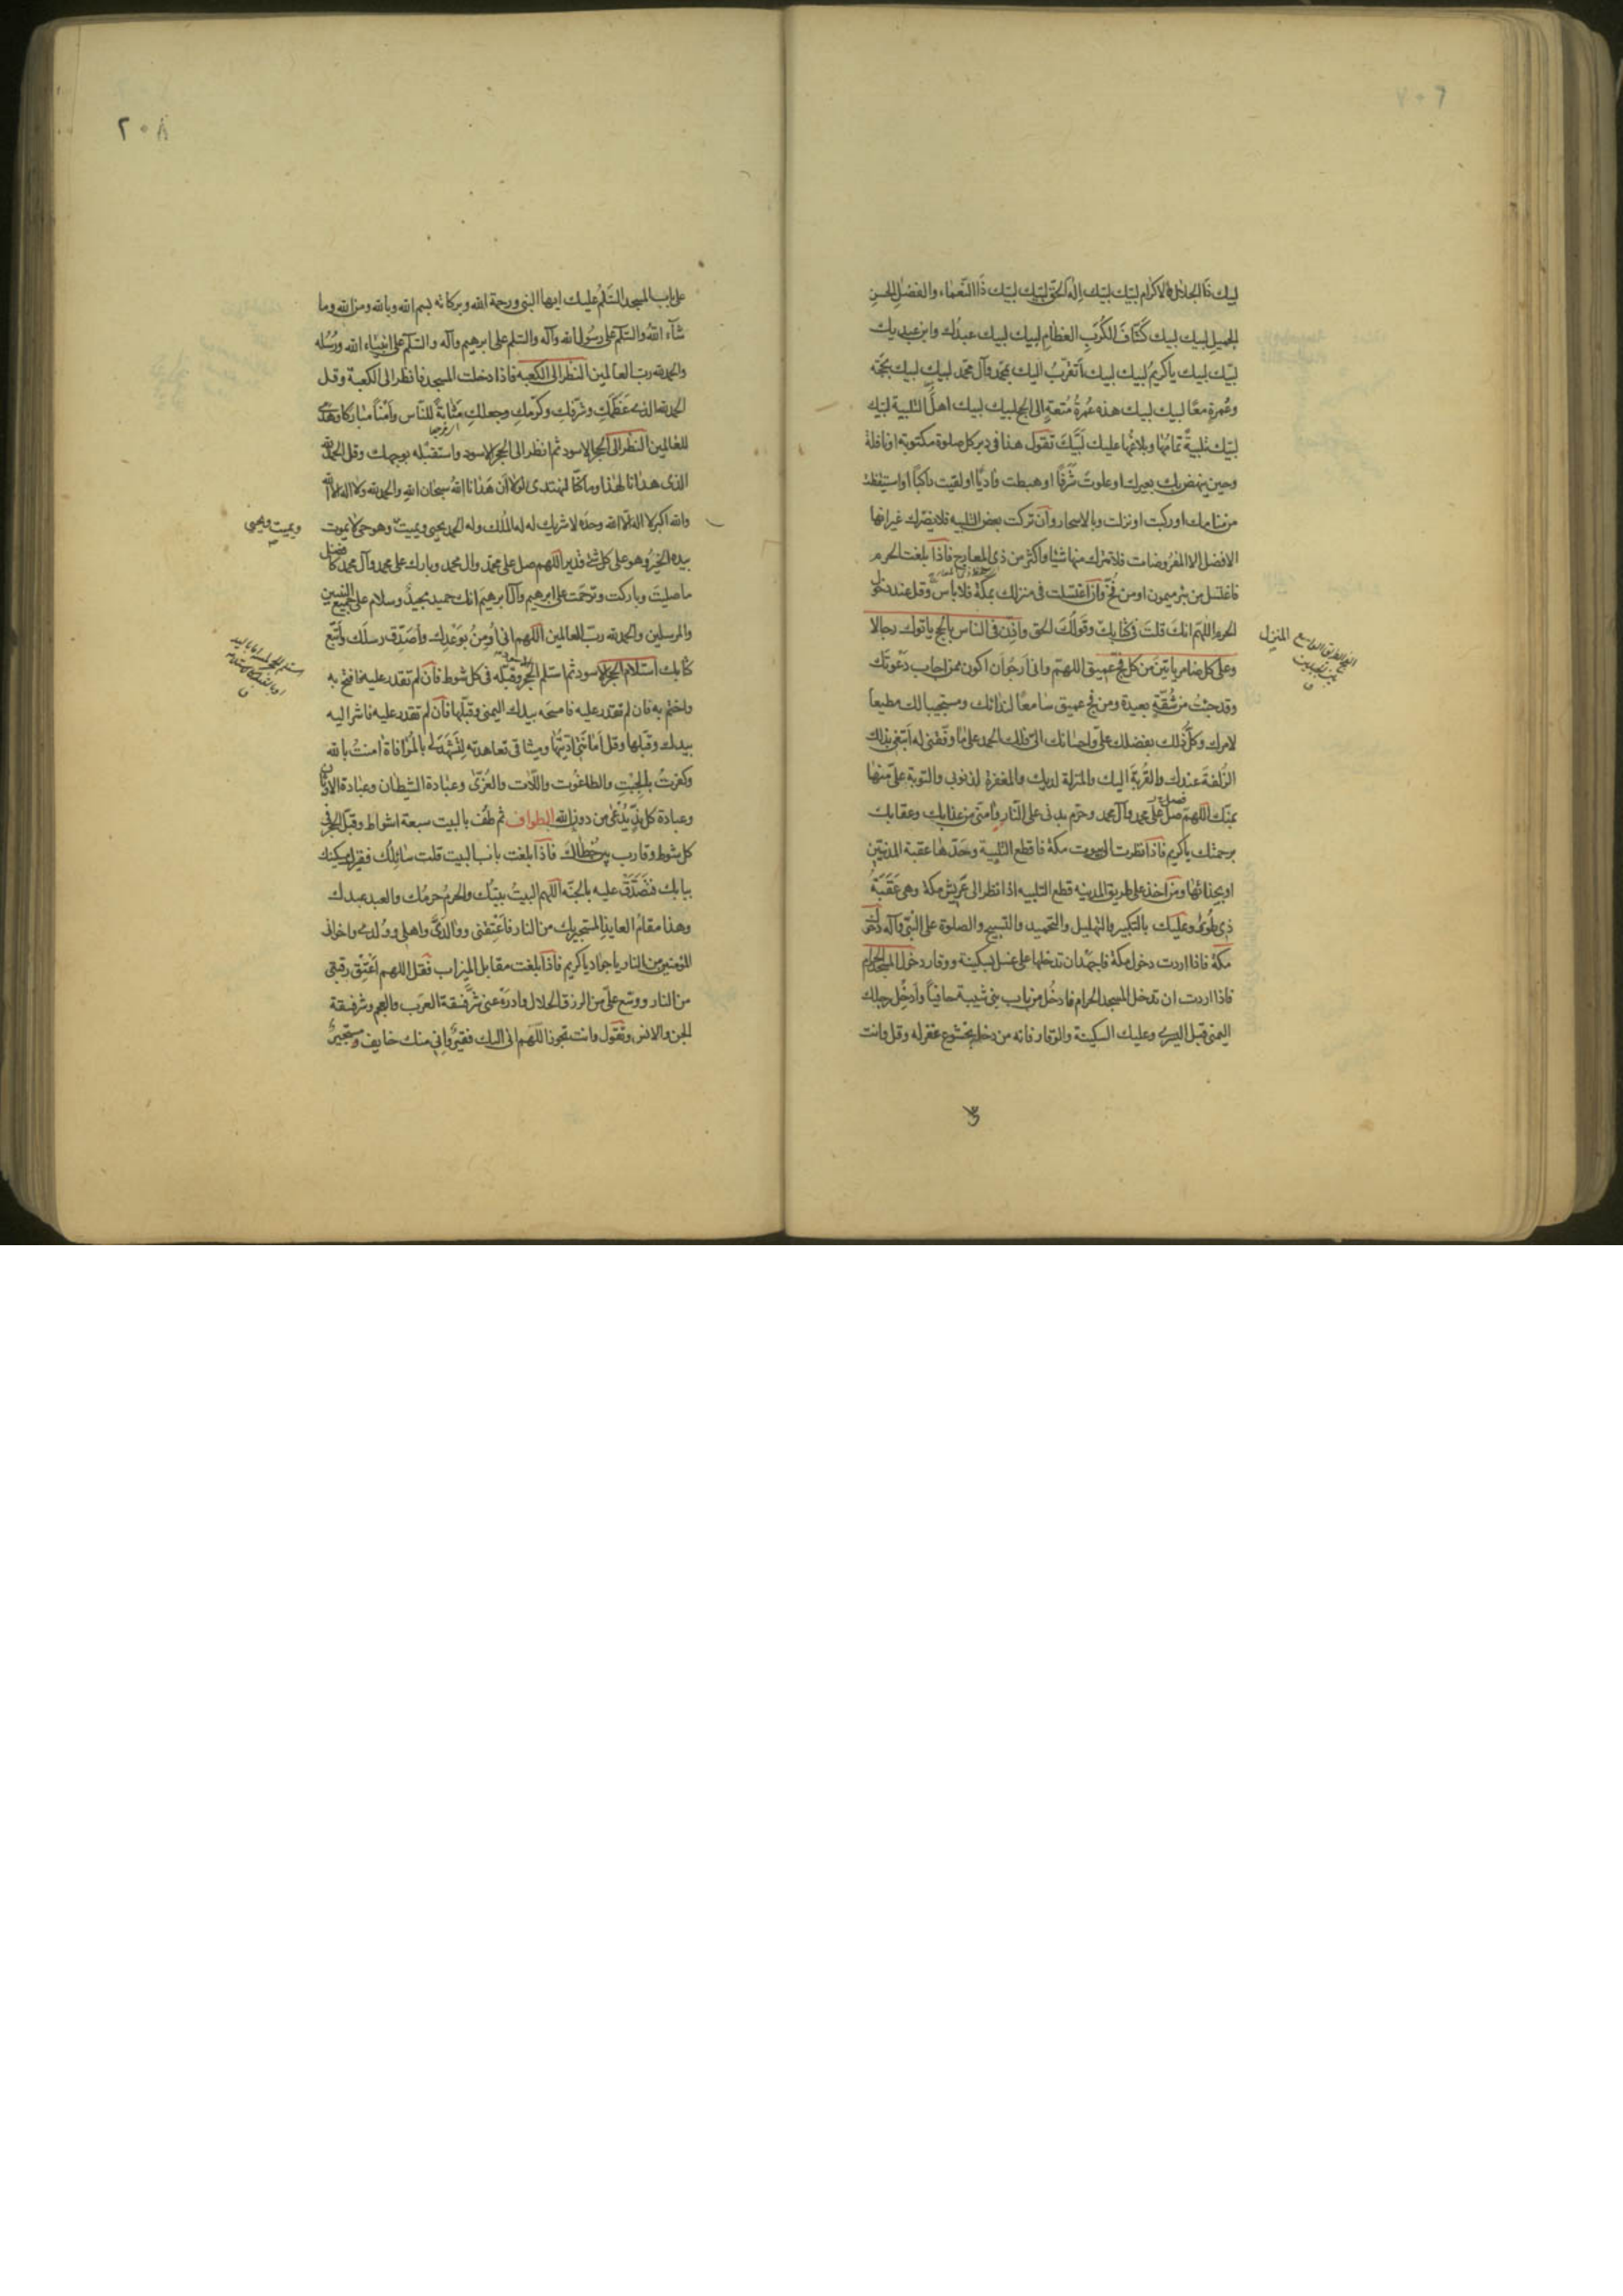 لبيك ذا الجلال والاكرام لبيك لبيك اله الحق لبيك لبيك ذا النعماء والفضل الحسن
الجميل لبيك لبيك كشاف الكرب العظام لبيك لبيك عبدك وابن عبديك
لبيك لبيك يا كريم لبيك لبيك اتقرب اليك بمحمد وآل محمد لبيك لبيك بحجة
وعمرة معا لبيك لبيك هذه عمرة متعة الى الحج لبيك لبيك اهل التلبية لبيك
لبيك تلبية تمامها وبلاغها عليك لبيك تقول هذا في دبر كل صلوة مكتوبة او نافلة
وحين ينهض بك بعيرك او علوت شرفا او هبطت واديا او لقيت راكبا او استيقظت
من منامك او ركبت او نزلت وبالاسحار وان تركت بعض التلبيه فلا يضرك غير انها
الافضل الا المفروضات فلا تترك منها شيئا واكثر من ذي المعارج فاذا بلغت الحرم
فاغتسل من بئر ميمون او من فخ وان اغتسلت في منزلك بمكة فلا باس وقل عند دخول
الحرم اللهم انك قلت في كتابك وقولك الحق واذن في الناس بالحج ياتوك رجالا
وعلى كل ضامر ياتين من كل فج عميق اللهم واني ارجو ان اكون ممن اجاب دعوتك
وقد جئت من شقة بعيدة ومن فج عميق سامعا لندائك ومستجيبا لك مطيعا
لامرك وكل ذلك بفضلك علي واحسانك الي فلك الحمد على ما وفقتني له ابتغي بذلك
الزلفة عندك والقربة اليك والمنزلة لديك والمغفرة لذنوبي والتوبة علي منها
بمنك اللهم صل على محمد وآل محمد وحرم بدني على النار وآمني من عذابك وعقابك
برحمتك يا كريم فاذا نظرت الى بيوت مكة فاقطع التلبية وحدها عقبة المدنيين
او بحذائها ومن اخذ على طريق المدينه قطع التلبيه اذا نظر الى عريش مكة وهي عقبة
ذي طوى وعليك بالتكبير والتهليل والتحميد والتسبيح والصلوة على النبي وآله دخول
مكة فاذا اردت دخول مكة فاجهد ان تدخلها على غسل بسكينة ووقار دخول المسجد الحرام
فاذا اردت ان تدخل المسجد الحرام فادخل من باب بني شيبة حافيا وادخل رجلك
اليمنى قبل اليسرى وعليك السكينة والوقار فانه من دخله بخشوع غفر له وقل وانت
الفج الطريق الواسع
المنزل
٢٠٨
على باب المسجد السلم عليك ايها النبي ورحمة الله وبركاته بسم الله وبالله ومن الله وما
شآء الله والسلم على رسول الله وآله والسلم على ابرهيم وآله والسلم على انبياء الله ورسله
والحمد لله رب العالمين النظر الى الكعبه فاذا دخلت المسجد فانظر الى الكعبة وقل
الحمد لله الذي عظمك وشرفك وكرمك وجعلك مثابة للناس وامنا مباركا وهدى
للعالمين النظر الى الحجر الاسود ثم انظر الى الحجر الاسود واستقبله بوجهك وقل الحمد لله
الذي هدانا لهذا وما كنا لنهتدي لولا ان هدانا الله سبحان الله والحمد لله ولا اله الا الله
والله اكبر لا اله الا الله وحده لا شريك له له الملك وله الحمد يحيي ويميت وهو حي لا يموت
ويميت ويحيي
بيده الخير وهو على كل شئ قدير اللهم صل على محمد وال محمد وبارك على محمد وآل محمد كافضل
ما صليت وباركت وترحمت على ابرهيم وآل ابرهيم انك حميد مجيد وسلام على جميع النبيين
والمرسلين والحمد لله رب العالمين اللهم اني اومن بوعدك واصدق رسلك واتبع
كتابك استلام الحجر الاسود ثم استلم الحجر وقبله في كل شوط فان لم تقدر عليه فافتح به
واختم به فان لم تقدر عليه فامسحه بيدك اليمنى وقبلها فان لم تقدر عليه فاشر اليه
بيدك وقبلها وقل امانتي اديتها وميثاقي تعاهدته لتشهد لي بالموافاة امنت بالله
وكفرت بالجبت والطاغوت واللات والعزى وعبادة الشيطان وعبادة الاوثان
وعبادة كل ند يدعى من دون الله الطواف ثم طف بالبيت سبعة اشواط وقبل الحجر في
كل شوط وقارب بين خطاك فاذا بلغت باب البيت قلت سائلك فقيرك مسكينك
ببابك فتصدق عليه بالجنة اللهم البيت بيتك والحرم حرمك والعبد عبدك
وهذا مقام العايذ المستجير بك من النار فاعتقني ووالدي واهلي وولدي واخواني
المؤمنين من النار يا جواد يا كريم فاذا بلغت مقابل الميزاب فقل اللهم اعتق رقبتي
من النار ووسع علي من الرزق الحلال وادرء عني شر فسقة العرب والعجم وشر فسقة
الجن والانس وتقول وانت تجوز اللهم اني اليك فقير واني منك خايف ومستجير